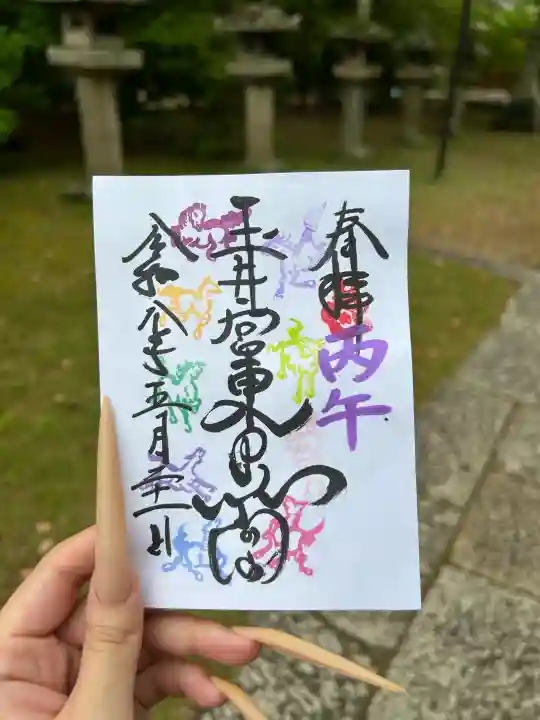 奉拝
丙午
玉井宮東照宮
令和八年五月二十一日